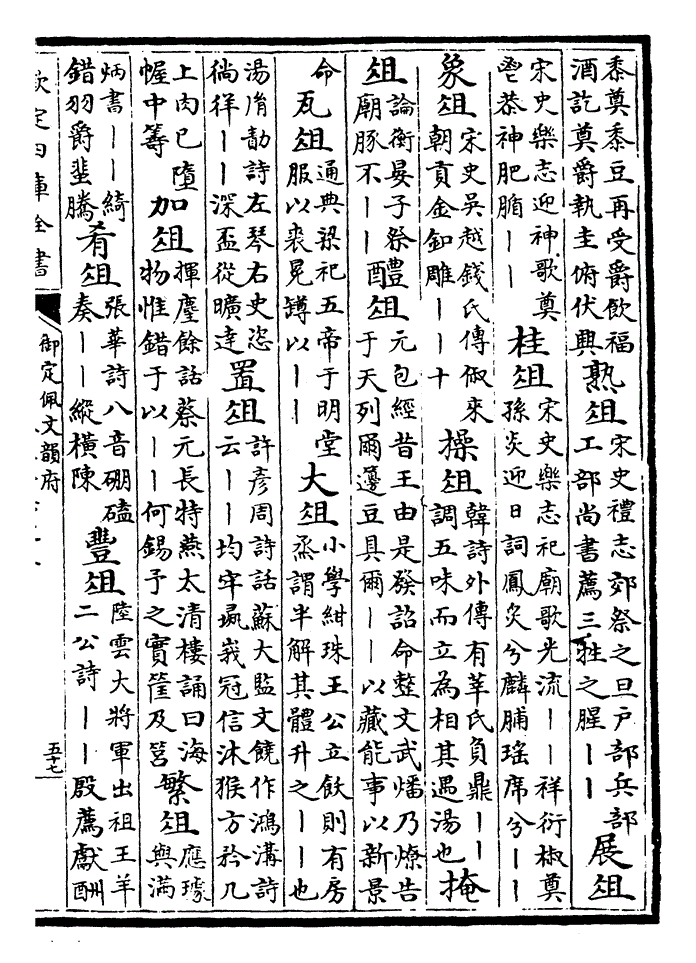 黍奠黍豆再受爵飲福酒訖奠爵執圭俯伏興熟俎宋史禮志郊祭之旦戶部兵部工部尚書薦三牲之腥丨丨展俎
宋史樂志迎神歌奠鬯恭神肥腯丨丨桂俎宋史樂志祀廟歌光流丨丨祥衍椒奠孫炎迎日詞鳳炙兮麟脯瑤席兮丨丨
象俎宋史吳越錢氏傳俶來朝貢金釦雕丨丨十操俎韓詩外傳有莘氏負鼎丨丨調五味而立為相其遇湯也掩
俎論衡晏子祭廟豚不丨丨醴俎元包經昔王由是發詔命整文武燔乃燎告于天列爾籩豆具爾丨丨以藏能事以新景
命瓦俎通典梁祀五帝于明堂服以裘冕罇以丨丨大俎小學紺珠王公立飲則有房烝謂半解其體升之丨丨也
湯胤勣詩左琴右史恣徜徉丨丨深盃從曠達置俎許彥周詩話蘇大監文饒作鴻溝詩云丨丨均牢孤峩冠信沐猴方矜几
上肉已墮幄中籌加俎揮麈餘話蔡元長特燕太清樓誦曰海物惟錯于以丨丨何錫予之實筐及筥繁俎應璩與滿
炳書丨丨綺錯羽爵蜚騰肴俎張華詩八音硼磕奏丨丨縱橫陳豐俎陸雲大將軍出祖王羊二公詩丨丨殷薦獻酬
欽定四庫全書
御定佩文韻府
五十七